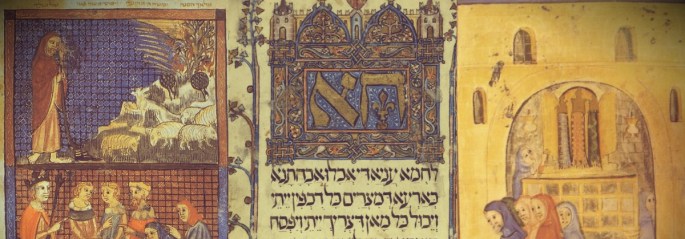 הא
לחמא עניא די אכלו אבהתנא
בארעא דמצרים כל דכפין ייתי
ויכול כל מאן דצריך ייתי ויפסח